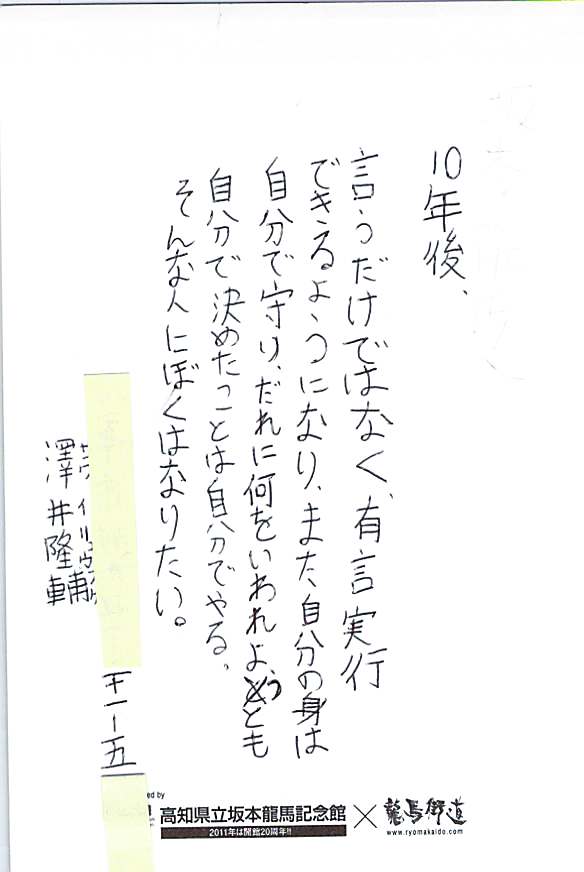 10年後、
言うだけではなく、有言実行
できるようになり、また、自分の身は
自分で守り、だれに何をいわれようとも
自分で決めたことは自分でやる。
そんな人にぼくはなりたい。
澤井隆輔
十一ー五
ed by
高知県立坂本龍馬記念館
2011年は開館20周年!!
×
龍馬街道
www.ryomakaido.com